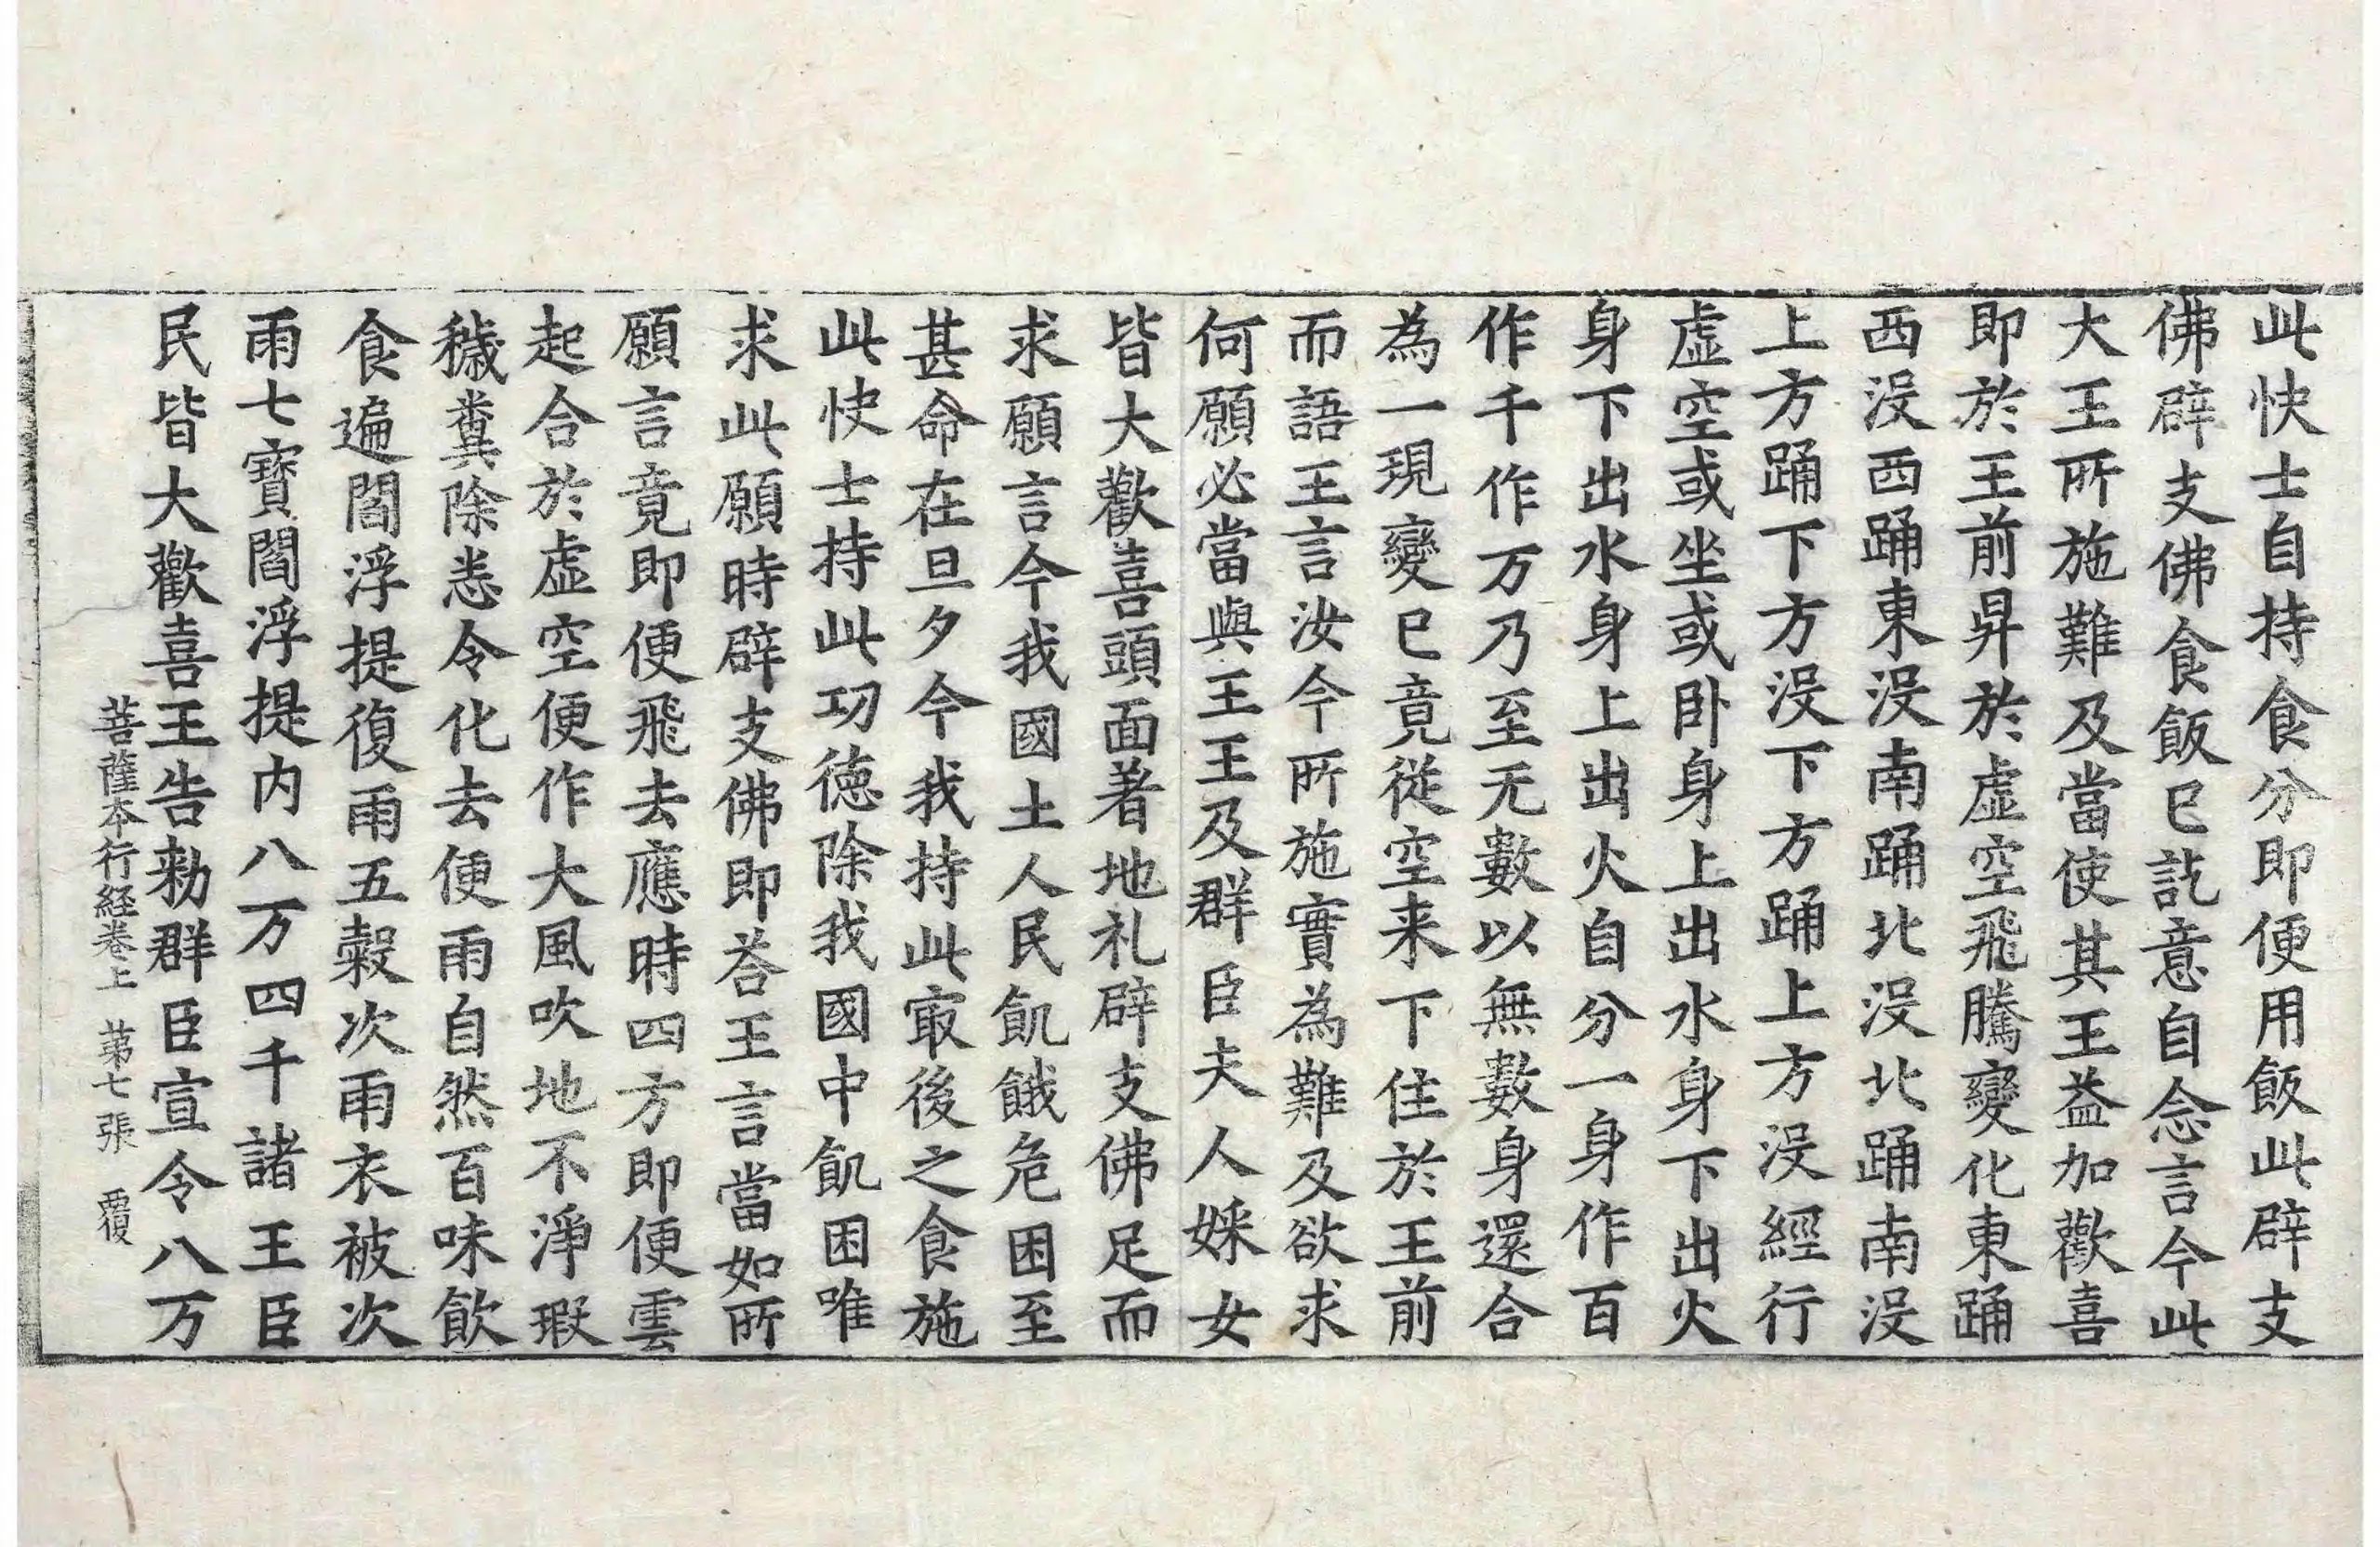 此快士自持食分即便用飯此辟支
佛辟支佛食飯已訖意自念言今此
大王所施難及當使其王益加歡喜
即於王前昇於虛空飛騰變化東踊
西沒西踊東沒南踊北沒北踊南沒
上方踊下方沒下方踊上方沒經行
虛空或坐或卧身上出水身下出火
身下出水身上出火自分一身作百
作千作万乃至无數以無數身還合
為一現變已竟從空来下住於王前
而語王言汝今所施實為難及欲求
何願必當與王王及群臣夫人婇女
皆大歡喜頭面著地礼辟支佛足而
求願言今我國土人民飢餓危困至
甚命在旦夕今我持此冣後之食施
此快士持此功德除我國中飢困唯
求此願時辟支佛即荅王言當如所
願言竟即便飛去應時四方即便雲
起合於虛空便作大風吹地不淨瑕
穢糞除悉令化去便雨自然百味飲
食遍閻浮提復雨五穀次雨衣被次
雨七寶閻浮提内八万四千諸王臣
民皆大歡喜王告勑群臣宣令八万
菩薩本行経卷上 苐七張 覆